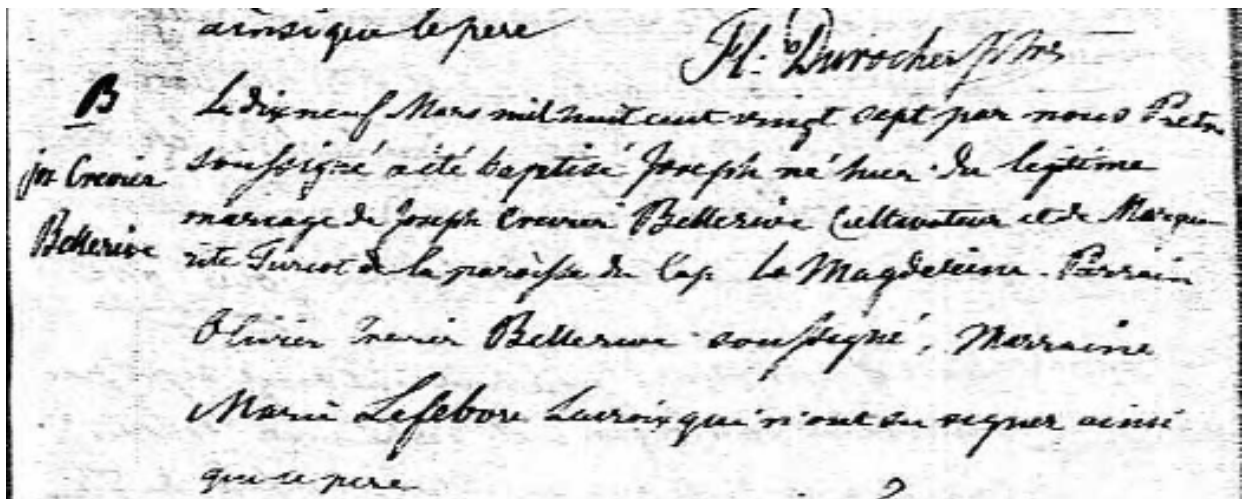 ainsi que le pere
Fl: Durocher Ptre
B
Jos Crevier
Bellerive
Le dix neuf Mars mil huit cent vingt sept par nous Pretre
soussigné a été baptisé Joseph né hier du legitime
mariage de Joseph Crevier Bellerive Cultivateur et de Margue
rite Turcot de la paroisse du Cap la Magdeleine. Parrain
Olivier Crevier Bellerive soussigné, Marraine
Marie Lefebvre Lacroix qui n'ont su signer ainsi
que le pere